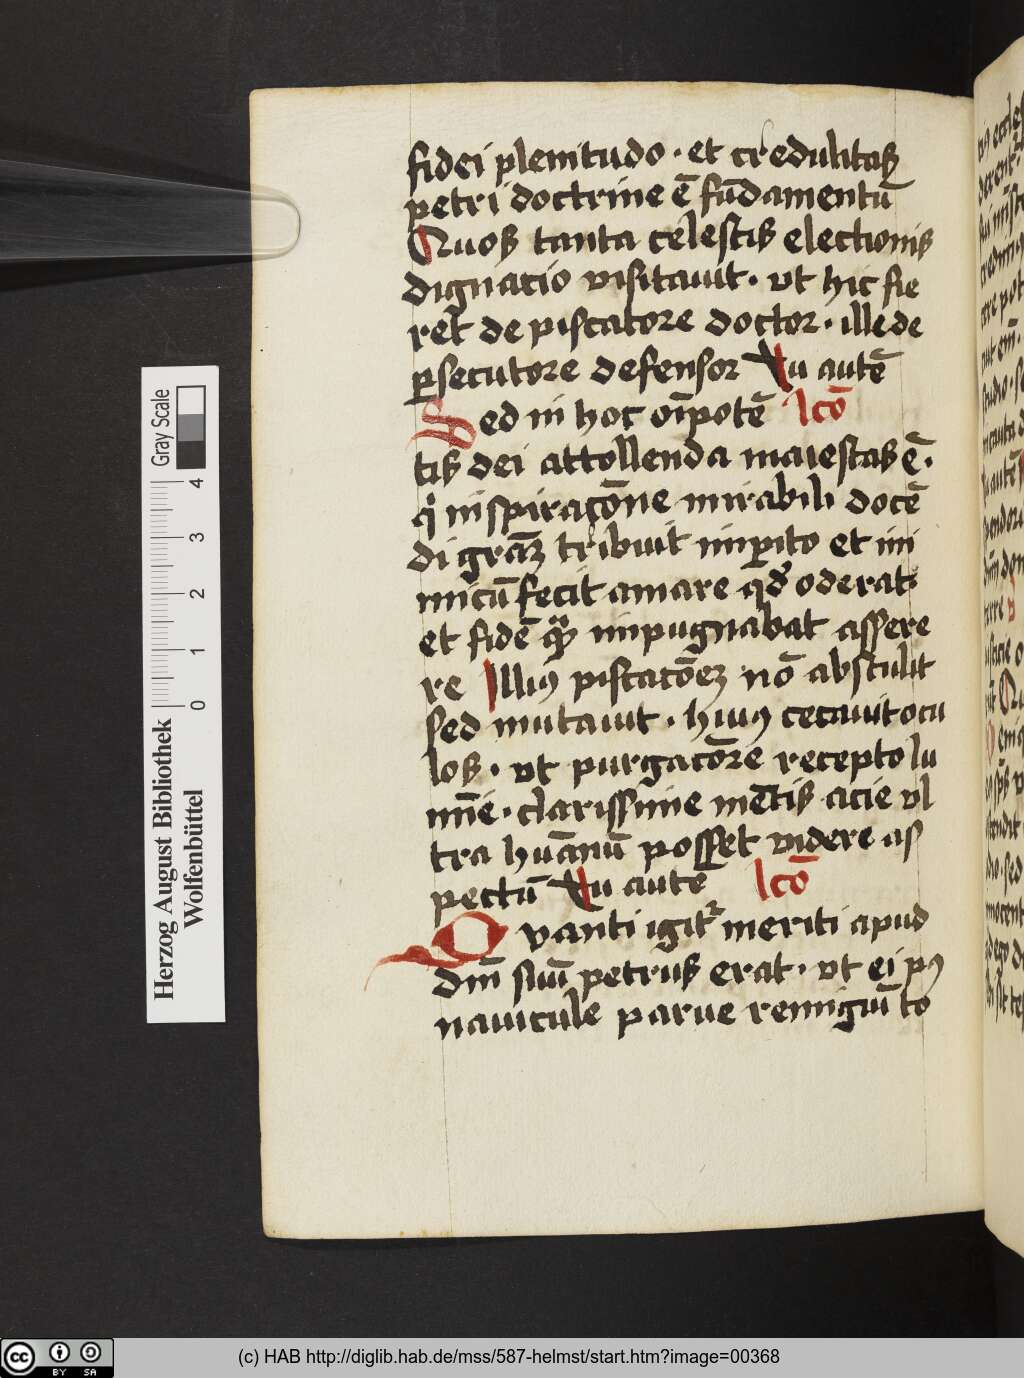 fidei plenitudo · et credulitas
petri doctrine ē fūdamentū
Quos tanta celestis electionis
dignacio visitauit · vt hic fie
ret de piscatore doctor · ille de
ꝑsecutore defensor Tu autē
Sed in hoc oīpotē lcō
tis dei attollenda maiestas ē ·
q̇ inspiracōne mirabili docē
di gr̄am tribuit imꝑito et ini
micū fecit amare qd̓ oderat
et fidē quā impugnabat assere
re Illiꝰ piscacōeꝫ nō abstulit
sed mutauit · huiꝰ cecauit ocu
los · vt purgacōre recepto lu
mīe · clarissime mētis acie vl
tra hūanū posset videre as
pectū Tu autē lcō
Quanti igit᷑ meriti apud
dm̄ suū petrus erat · vt ei pꝰ
nauicule parue remigiū to
Herzog August Bibliothek
Wolfenbüttel
Gray Scale
0 1 2 3 4
cc BY SA
(c) HAB http://diglib.hab.de/mss/587-helmst/start.htm?image=00368